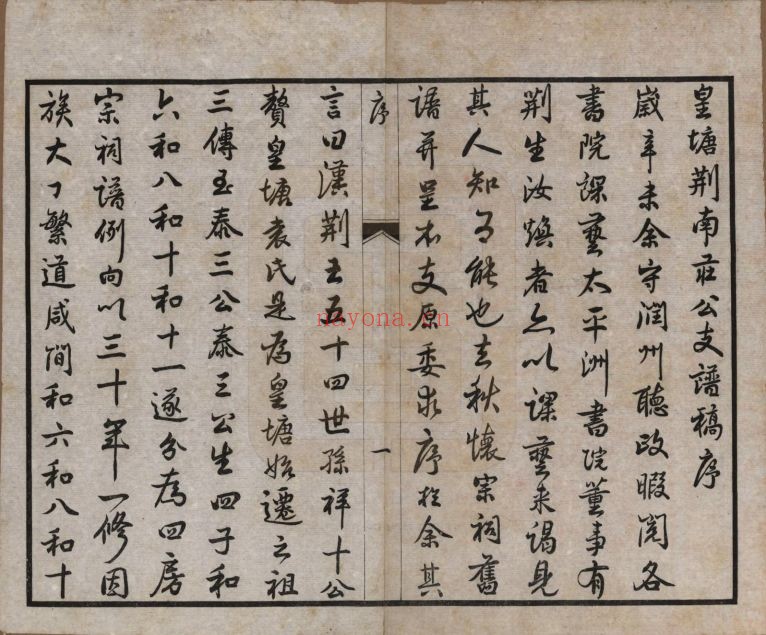 皇塘荆南莊公支譜稿序
歲辛未余守潤州聽政暇閱各
書院課藝太平洲書院董事有
荆生汝煥者亦以課藝来謁見
其人知為能也去秋懷宗祠舊
譜并呈本支原委求序於余其
序
一
言曰漢荆王五十四世孫祥十公
贅皇塘袁氏是為皇塘始遷之祖
三傳至泰三公泰三公生四子和
六和八和十和十一遂分為四房
宗祠譜例向以三十年一修因
族大丁繁道咸間和六和八和十
nayona.cn